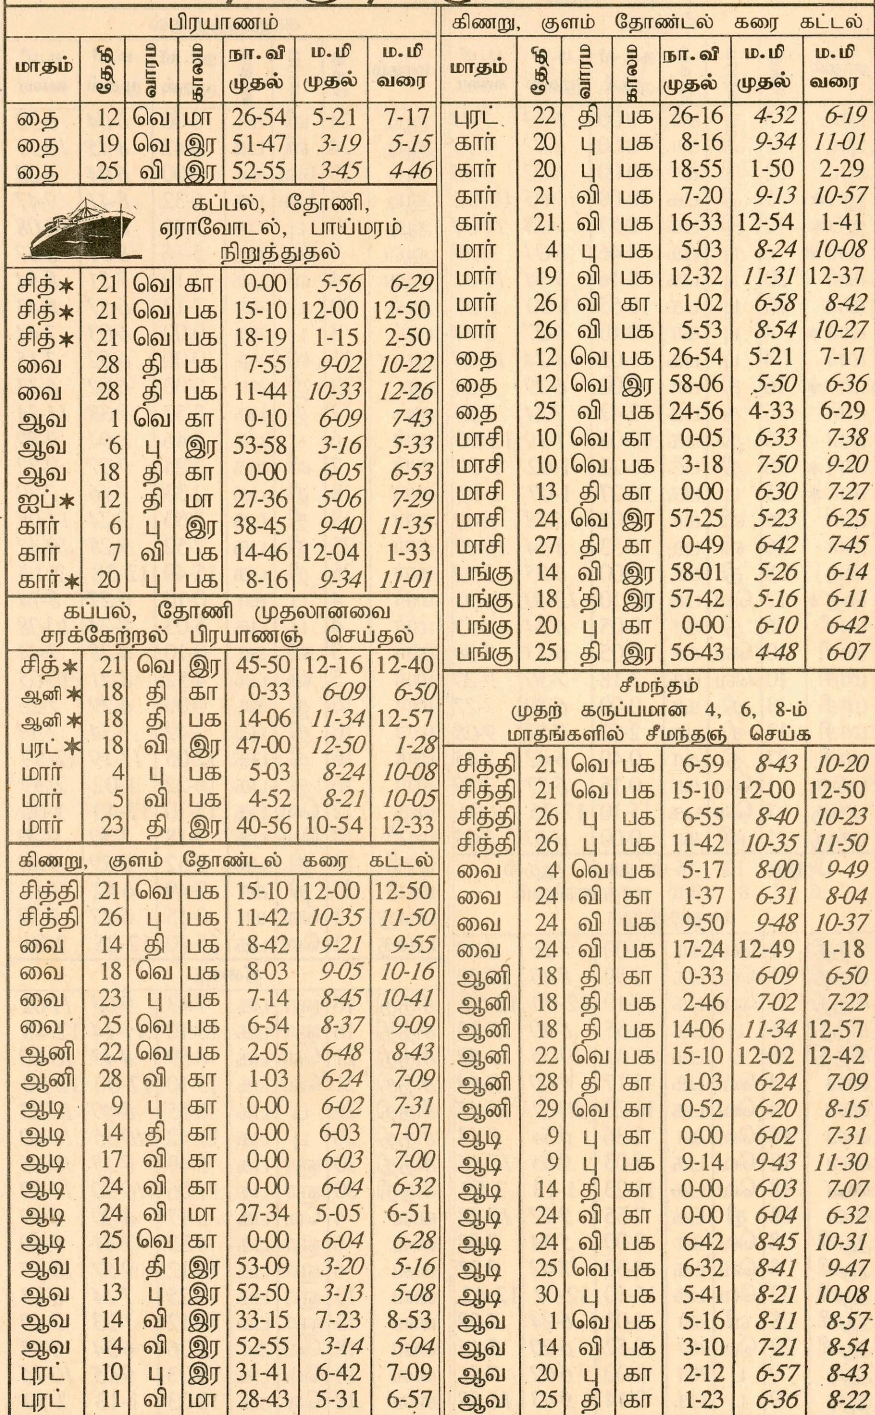 பிரயாணம்
மாதம் தேதி வாரம காலம நா.வி முதல் ம.மி முதல் ம.மி வரை
தை 12 வெ மா 26-54 5-21 7-17
தை 19 வெ இர 51-47 3-19 5-15
தை 25 வி இர 52-55 3-45 4-46
கப்பல், தோணி,
ஏராவோடல், பாய்மரம்
நிறுத்துதல்
சித்* 21 வெ கா 0-00 5-56 6-29
சித்* 21 வெ பக 15-10 12-00 12-50
சித்* 21 வெ பக 18-19 1-15 2-50
வை 28 தி பக 7-55 9-02 10-22
வை 28 தி பக 11-44 10-33 12-26
ஆவ 1 வெ கா 0-10 6-09 7-43
ஆவ 6 பு இர 53-58 3-16 5-33
ஆவ 18 தி கா 0-00 6-05 6-53
ஐப்* 12 தி மா 27-36 5-06 7-29
கார் 6 பு இர 38-45 9-40 11-35
கார் 7 வி பக 14-46 12-04 1-33
கார்* 20 பு பக 8-16 9-34 11-01
கப்பல், தோணி முதலானவை
சரக்கேற்றல் பிரயாணஞ் செய்தல்
சித்* 21 வெ இர 45-50 12-16 12-40
ஆனி* 18 தி கா 0-33 6-09 6-50
ஆனி* 18 தி பக 14-06 11-34 12-57
புரட்* 18 வி இர 47-00 12-50 1-28
மார் 4 பு பக 5-03 8-24 10-08
மார் 5 வி பக 4-52 8-21 10-05
மார் 23 தி இர 40-56 10-54 12-33
கிணறு, குளம் தோண்டல் கரை கட்டல்
சித்தி 21 வெ பக 15-10 12-00 12-50
சித்தி 26 பு பக 11-42 10-35 11-50
வை 14 தி பக 8-42 9-21 9-55
வை 18 வெ பக 8-03 9-05 10-16
வை 23 பு பக 7-14 8-45 10-41
வை 25 வெ பக 6-54 8-37 9-09
ஆனி 22 வெ பக 2-05 6-48 8-43
ஆனி 28 வி கா 1-03 6-24 7-09
ஆடி 9 பு கா 0-00 6-02 7-31
ஆடி 14 தி கா 0-00 6-03 7-07
ஆடி 17 வி கா 0-00 6-03 7-00
ஆடி 24 வி கா 0-00 6-04 6-32
ஆடி 24 வி மா 27-34 5-05 6-51
ஆடி 25 வெ கா 0-00 6-04 6-28
ஆவ 11 தி இர 53-09 3-20 5-16
ஆவ 13 பு இர 52-50 3-13 5-08
ஆவ 14 வி இர 33-15 7-23 8-53
ஆவ 14 வி இர 52-55 3-14 5-04
புரட் 10 பு இர 31-41 6-42 7-09
புரட் 11 வி மா 28-43 5-31 6-57
கிணறு, குளம் தோண்டல் கரை கட்டல்
மாதம் தேதி வாரம காலம நா.வி முதல் ம.மி முதல் ம.மி வரை
புரட் 22 தி பக 26-16 4-32 6-19
கார் 20 பு பக 8-16 9-34 11-01
கார் 20 பு பக 18-55 1-50 2-29
கார் 21 வி பக 7-20 9-13 10-57
கார் 21 வி பக 16-33 12-54 1-41
மார் 4 பு பக 5-03 8-24 10-08
மார் 19 வி பக 12-32 11-31 12-37
மார் 26 வி கா 1-02 6-58 8-42
மார் 26 வி பக 5-53 8-54 10-27
தை 12 வெ பக 26-54 5-21 7-17
தை 12 வெ இர 58-06 5-50 6-36
தை 25 வி பக 24-56 4-33 6-29
மாசி 10 வெ கா 0-05 6-33 7-38
மாசி 10 வெ பக 3-18 7-50 9-20
மாசி 13 தி கா 0-00 6-30 7-27
மாசி 24 வெ இர 57-25 5-23 6-25
மாசி 27 தி கா 0-49 6-42 7-45
பங்கு 14 வி இர 58-01 5-26 6-14
பங்கு 18 தி இர 57-42 5-16 6-11
பங்கு 20 பு கா 0-00 6-10 6-42
பங்கு 25 தி இர 56-43 4-48 6-07
சீமந்தம்
முதற் கருப்பமான 4, 6, 8-ம்
மாதங்களில் சீமந்தஞ் செய்க
சித்தி 21 வெ பக 6-59 8-43 10-20
சித்தி 21 வெ பக 15-10 12-00 12-50
சித்தி 26 பு பக 6-55 8-40 10-23
சித்தி 26 பு பக 11-42 10-35 11-50
வை 4 வெ பக 5-17 8-00 9-49
வை 24 வி கா 1-37 6-31 8-04
வை 24 வி பக 9-50 9-48 10-37
வை 24 வி பக 17-24 12-49 1-18
ஆனி 18 தி கா 0-33 6-09 6-50
ஆனி 18 தி பக 2-46 7-02 7-22
ஆனி 18 தி பக 14-06 11-34 12-57
ஆனி 22 வெ பக 15-10 12-02 12-42
ஆனி 28 தி கா 1-03 6-24 7-09
ஆனி 29 வெ கா 0-52 6-20 8-15
ஆடி 9 பு கா 0-00 6-02 7-31
ஆடி 9 பு பக 9-14 9-43 11-30
ஆடி 14 தி கா 0-00 6-03 7-07
ஆடி 24 வி கா 0-00 6-04 6-32
ஆடி 24 வி பக 6-42 8-45 10-31
ஆடி 25 வெ பக 6-32 8-41 9-47
ஆடி 30 பு பக 5-41 8-21 10-08
ஆவ 1 வெ பக 5-16 8-11 8-57
ஆவ 14 வி பக 3-10 7-21 8-54
ஆவ 20 பு கா 2-12 6-57 8-43
ஆவ 25 தி கா 1-23 6-36 8-22